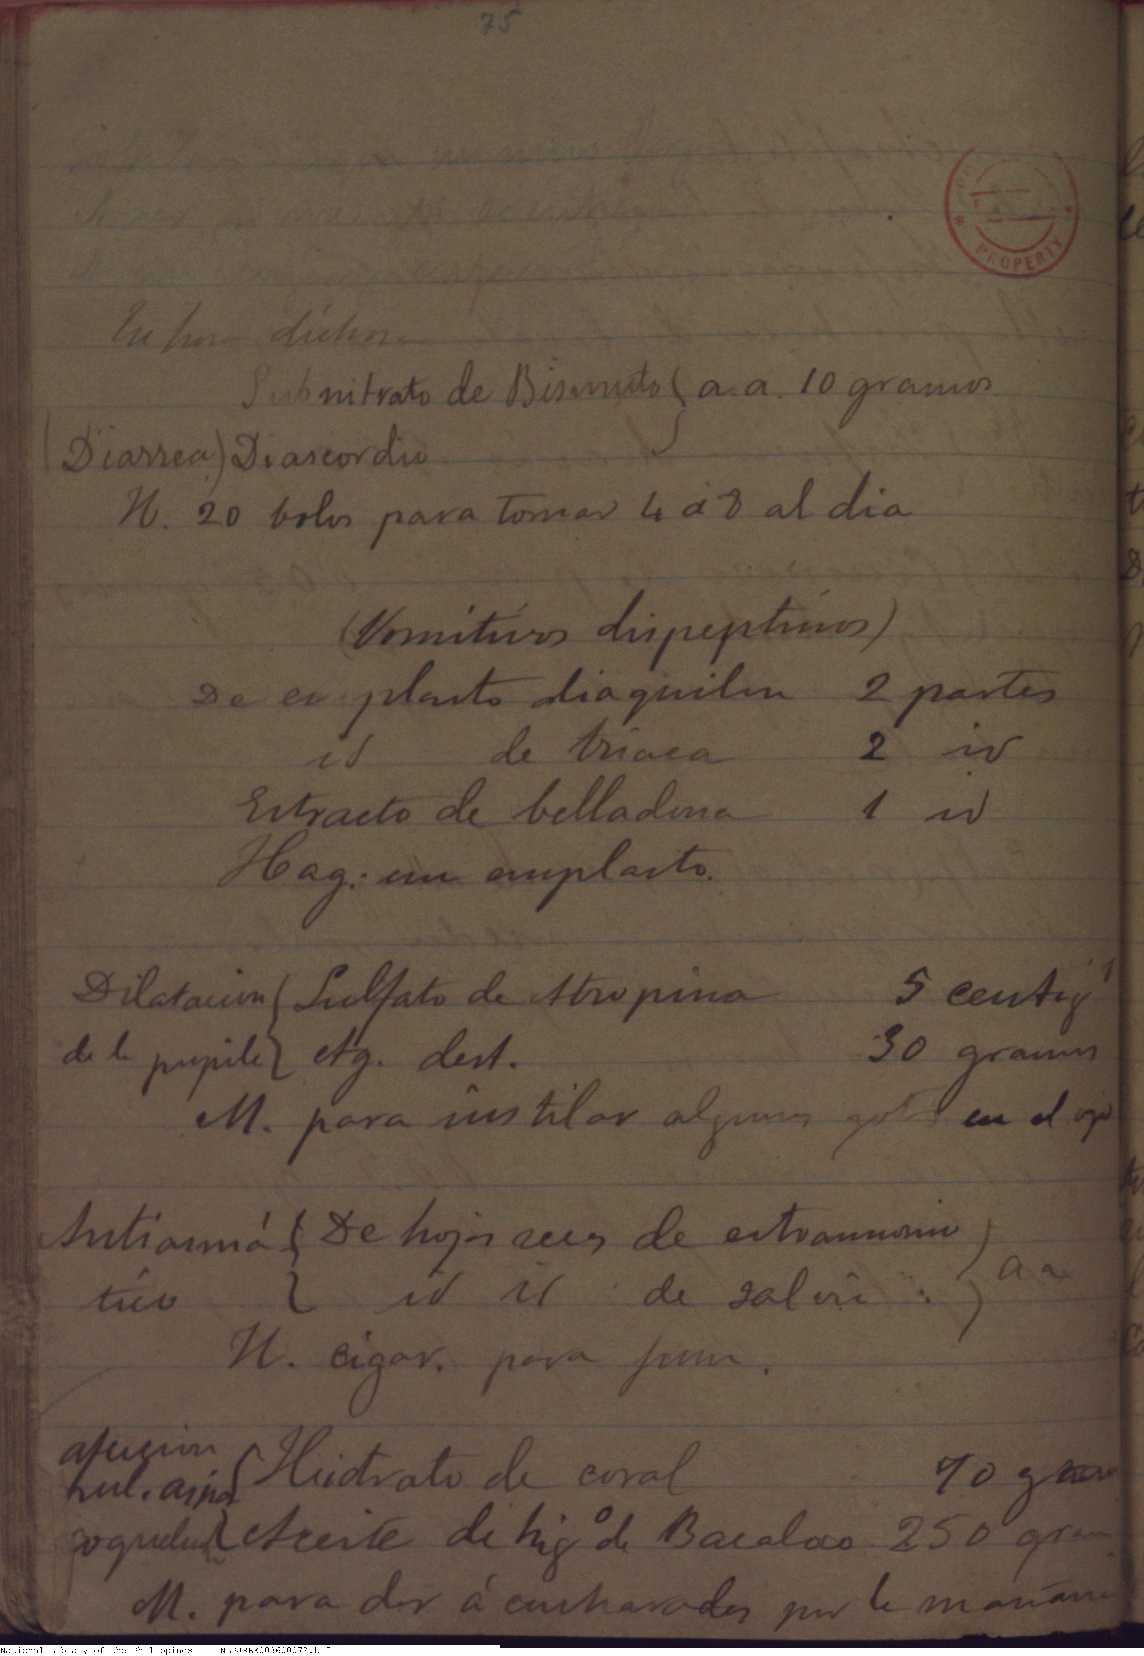 75
PROPERTY
Subnitrato de Bismuto a.a. 10 gramos
(Diarrea) Diascordio
H. 20 bolos para tomar 4 á 8 al dia
(Vomitivos dispepticos)
De emplasto diaquilon 2 partes
id de triaca 2 id
Extracto de belladona 1 id
Hag: un emplasto.
Dilatacion { Sulfato de Atropina 5 centig
de la pupila } Ag. dest. 30 gramos
M. para instilar algunas gotas en el ojo
Antiasmá { De hojas secas de estramonio
tico } id id de salvia } a a
H. cigar. para fum.
afeccion
pul. asma { Hidrato de coral 10 gram
coqueluch { Aceite de hig° de Bacalao 250 gram
M. para dar á cucharadas por la mañana